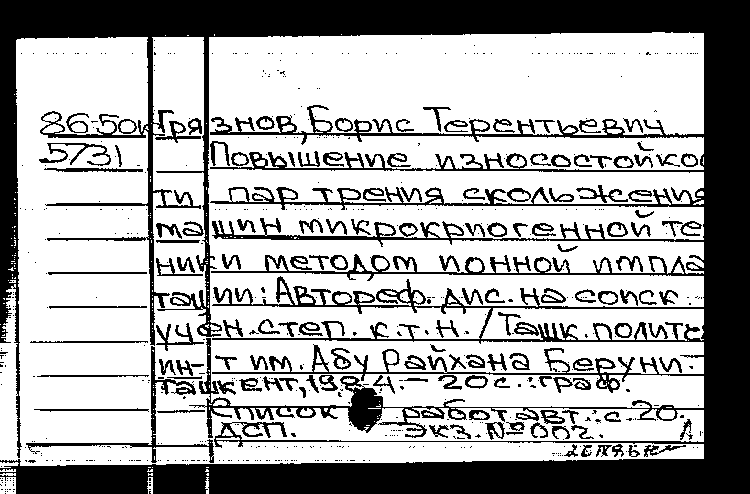 86-50к Грязнов, Борис Терентьевич
5731 Повышение износостойкос
ти пар трения скольжения
машин микрокриогенной те
ники методом ионной импла
тации: Автореф. дис. на соиск.
учён. степ. к.т.н. / Ташк. политех
ин-т им. Абу Райхана Беруни.-
Ташкент, 1984.- 20с.: граф.
Список работ авт.: с. 20.
ДСП. Экз. №002.